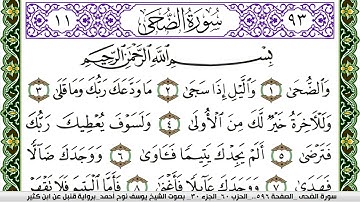 ٩٣ سُورَةُ الضُّحَى ١١
بِسْمِ اللَّهِ الرَّحْمَنِ الرَّحِيمِ
وَالضُّحَى ١ وَالَّيْلِ إِذَا سَجَى ٢ مَا وَدَّعَكَ رَبُّكَ وَمَا قَلَى ٣
وَلَلْآخِرَةُ خَيْرٌ لَّكَ مِنَ الْأُولَى ٤ وَلَسَوْفَ يُعْطِيكَ رَبُّكَ
فَتَرْضَى ٥ أَلَمْ يَجِدْكَ يَتِيمًا فَـَٔاوَى ٦ وَوَجَدَكَ ضَآلًّا
فَهَدَى ٧ وَوَجَدَكَ عَآئِلًا فَأَغْنَى ٨ فَأَمَّا الْيَتِيمَ فَلَا تَقْهَرْ
سورة الضحى _الصفحة ٥٩٦_ الحزب ٦٠_ الجزء ٣٠_ بصوت الشيخ يوسف نوح أحمد_برواية قنبل عن ابن كثير